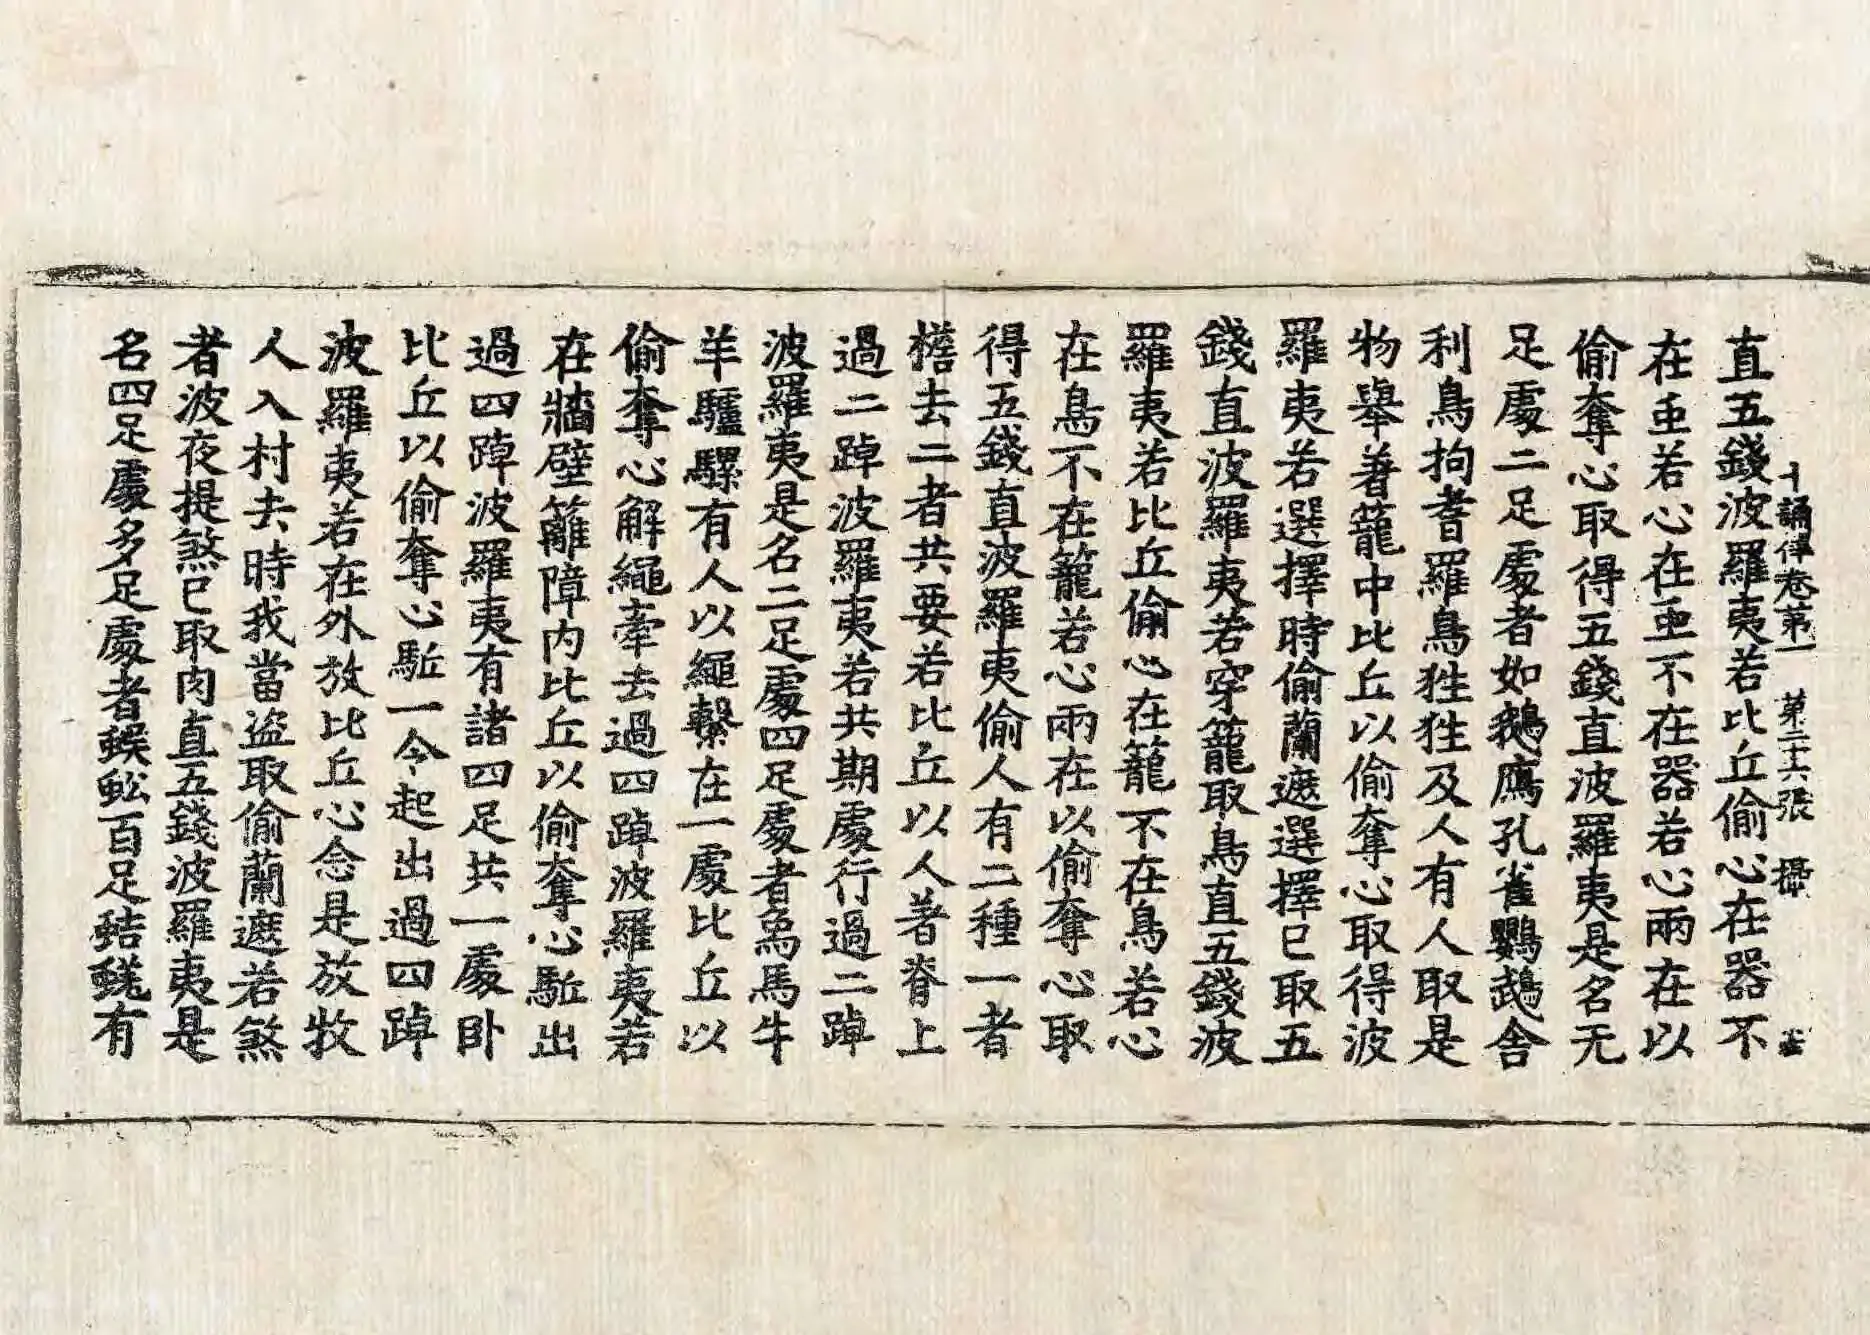 十誦律卷第一 第二十六張 攝
直五錢波羅夷若比丘偷心在器不
在虫若心在虫不在器若心兩在以
偷奪心取得五錢直波羅夷是名无
足處二足處者如鵝鴈孔雀鸚鵡舍
利鳥拘耆羅鳥狌狌及人有人取是
物舉著籠中比丘以偷奪心取得波
羅夷若選擇時偷蘭遮選擇已取五
錢直波羅夷若穿籠取鳥直五錢波
羅夷若比丘偷心在籠不在鳥若心
在鳥不在籠若心兩在以偷奪心取
得五錢直波羅夷偷人有二種一者
檐去二者共要若比丘以人著脊上
過二踔波羅夷若共期處行過二踔
波羅夷是名二足處四足處者象馬牛
羊驢騾有人以繩繫在一處比丘以
偷奪心解繩牽去過四踔波羅夷若
在牆壁籬障內比丘以偷奪心駈出
過四踔波羅夷有諸四足共一處卧
比丘以偷奪心駈一令起出過四踔
波羅夷若在外放比丘心念是放牧
人入村去時我當盜取偷蘭遮若煞
者波夜提煞已取肉直五錢波羅夷是
名四足處多足處者蜈蚣百足蛣蜣有